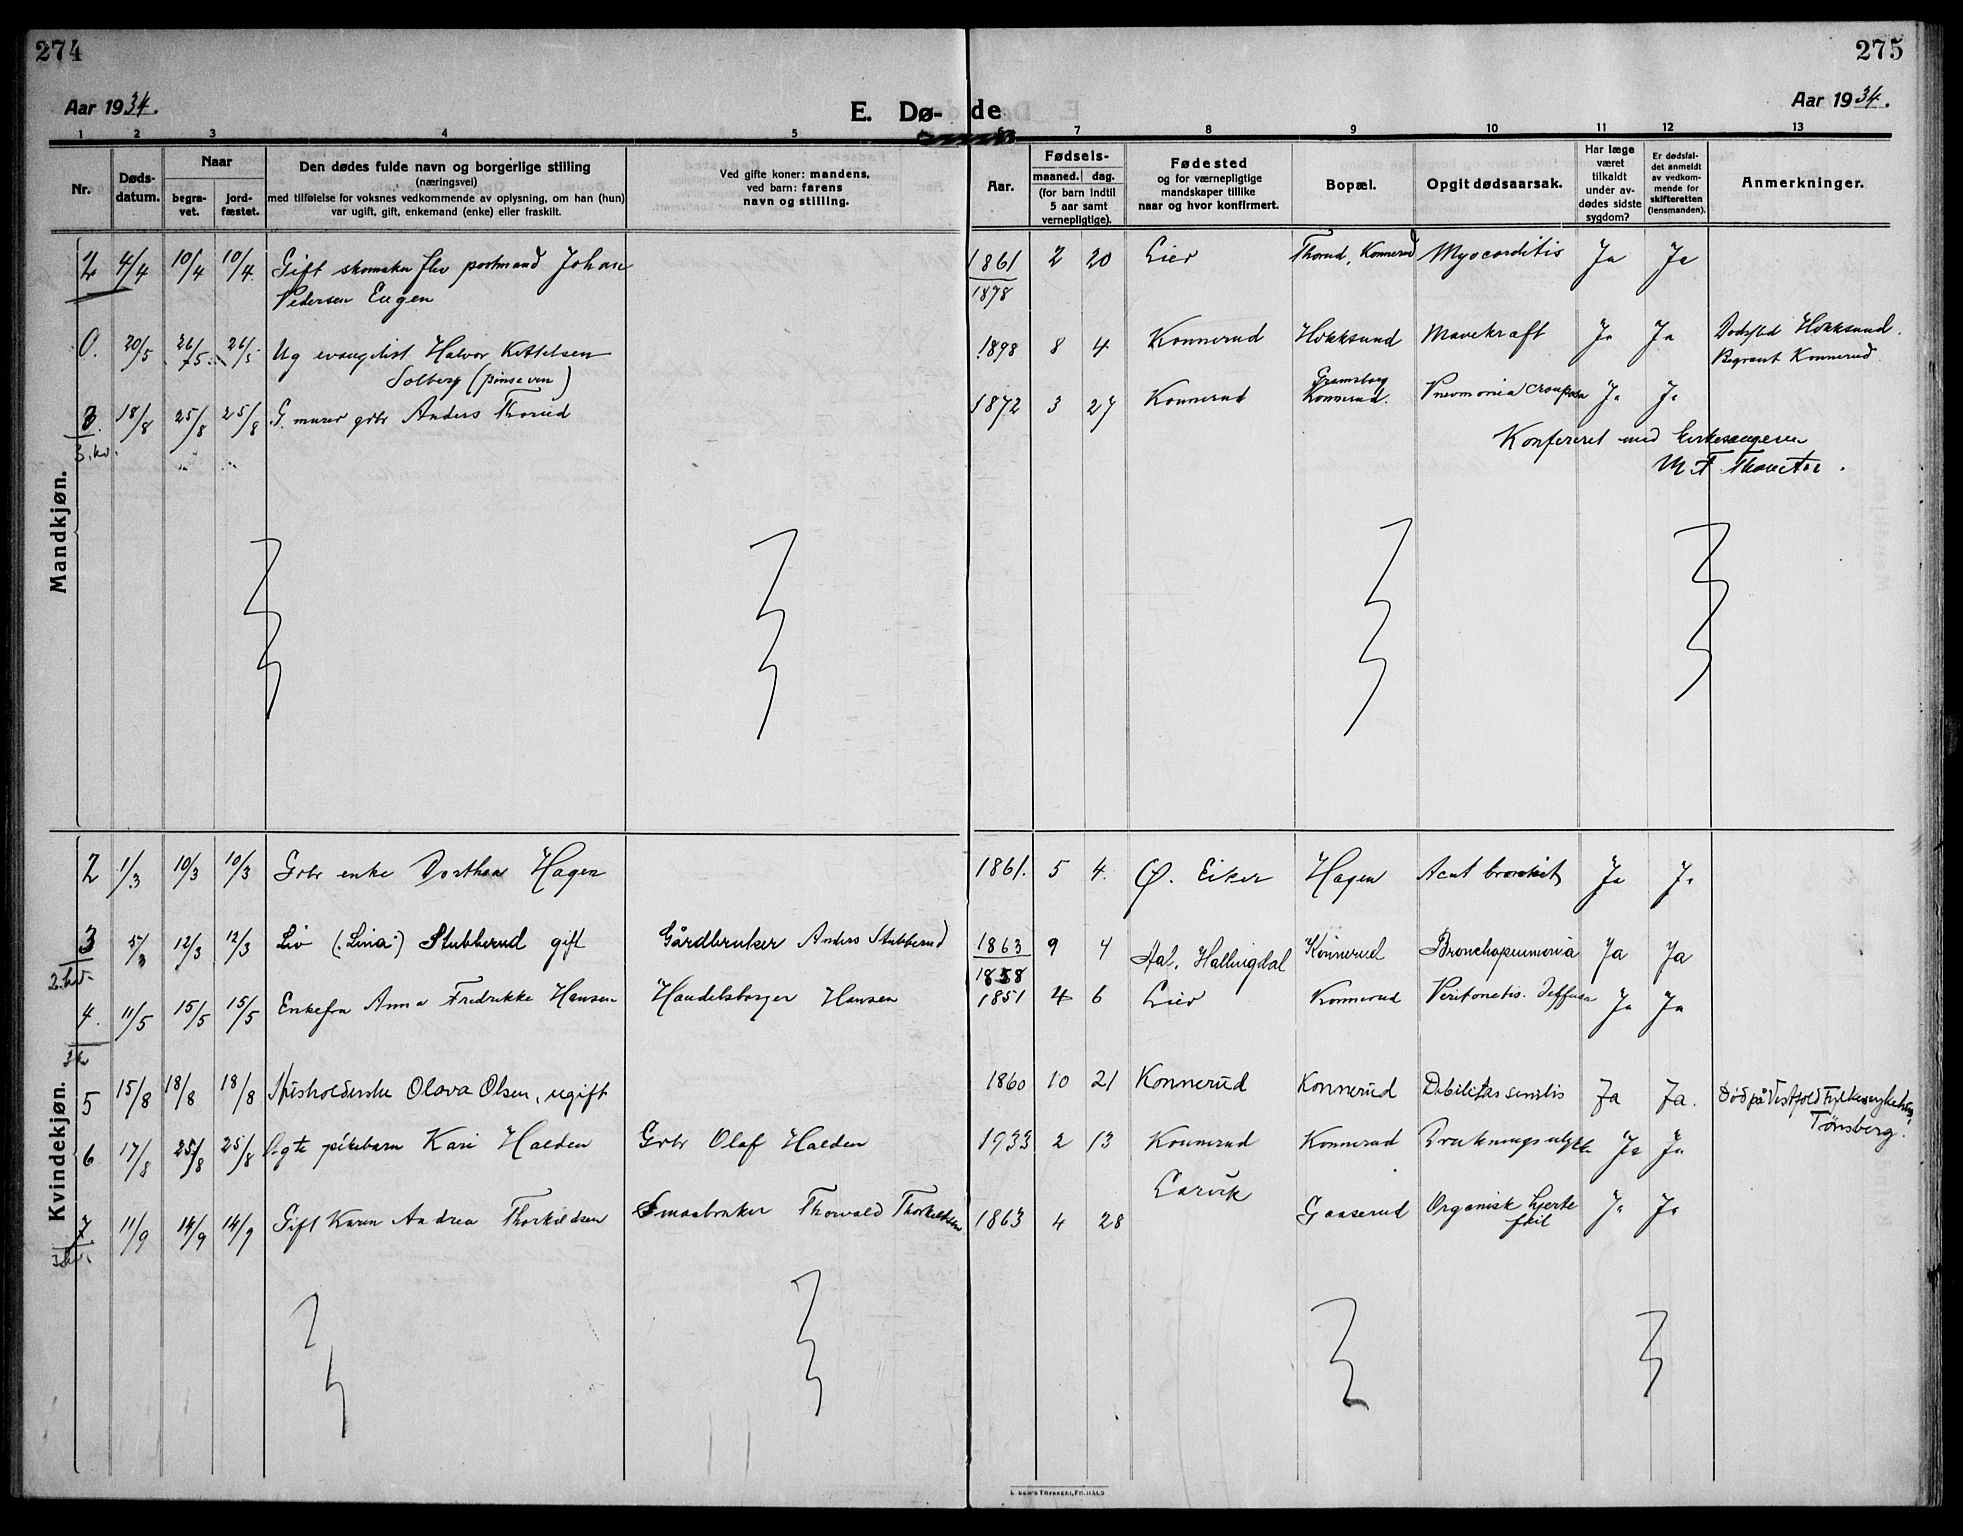 274
275
Aar 1934.
E. Dø-de
Aar 1934.
1 2 3 4 5 6 7 8 9 10 11 12 13
Nr.
Døds-
datum.
Naar
begra-
vet.
jord-
fæstet.
Den dødes fulde navn og borgerlige stilling
(næringsvei)
med tilføielse for voksnes vedkommende av oplysning, om han (hun)
var ugift, gift, enkemand (enke) eller fraskilt.
Ved gifte koner: mandens,
ved barn: farens
navn og stilling.
Aar.
Fødsels-
maaned. dag.
(for barn indtil
5 aar samt
vernepligtige).
Fødested
og for værnepligtige
mandskaper tillike
naar og hvor konfirmert.
Bopæl.
Opgit dødsaarsak.
Har læge
været
tilkaldt
under av-
dødes sidste
sygdom?
Er dødsfal-
det anmeldt
av vedkom-
mende for
skifteretten
(lensmanden).
Anmerkninger.
Mandkjøn.
2 4/4 10/4 10/4 Gift skomaker flv postmand Johan 1861 2 20 Lier Thorud, Konnerud Myocorditis Ja Ja
Pedersen Eugen 1878
0. 20/5 26/5 26/5 Ug evangelist Halvor Kittelsen 1898 8 4 Konnerud Hokksund Mavekræft Ja Ja Dødssted Hokksund.
Solberg (pinseven) Begravet Konnerud
3. 18/8 25/8 25/8 G. murer gbr Anders Thorud 1872 3 27 Konnerud Gramsborg Konnerud. Pneumonia crouposa Ja Ja
3. kv.
Konferert med kirkesangeren
M. F.
Kvindekjøn.
2 1/3 10/3 10/3 Gbr enke Dorthea Hagen 1861. 5 4. Ø. Eiker Hagen Acut bronkit Ja Ja
3 5/3 12/3 12/3 Liv (Lina) Stubberud gift Gårdbruker Anders Stubberud 1863 9 4 Aal, Hallingdal Konnerud Bronchopneumonia Ja Ja
2. kv. 1858
4. 11/5 15/5 15/5 Enkefru Anna Fredrikke Hansen Handelsborger Hansen 1851 4 6 Lier Konnerud Peritonetis. Deffusa Ja Ja
3 kv
5 15/8 18/8 18/8 Husholderske Olava Olsen, ugift 1860 10 21 Konnerud Konnerud Debilitas senilis Ja Ja. Død på Vestfold Fylkessykehus,
Tønsberg.
6 17/8 25/8 25/8 Ægte pikebarn Kari Halden Gbr Olaf Halden 1933 2 13 Konnerud Konnerud Drukningsulykke Ja Ja
7 11/9 14/9 14/9 Gift Karen Andrea Thorkildsen Smaabruker Thorvald Thorkildsen 1863 4 28 Larvik Gaaserud Organisk hjerte Ja Ja
3 kv. feil